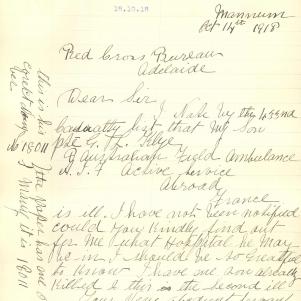 18.10.18
Mannum
Oct 14th 1918
Red Cross Bureau
Adelaide
Dear Sir
I Note by the 455nd
Casualty list that my son
Pte G. Th.
8 Australian Field Ambulance
A.I.F. Active Service
Abroad
France
is ill. I have not been notified
could you kindly find out
for me what Hospital he may
be in I should be so Grateful
to know I have one son already
Killed & this is the second ill
This is his
No 18011
paper has one
it is 18011